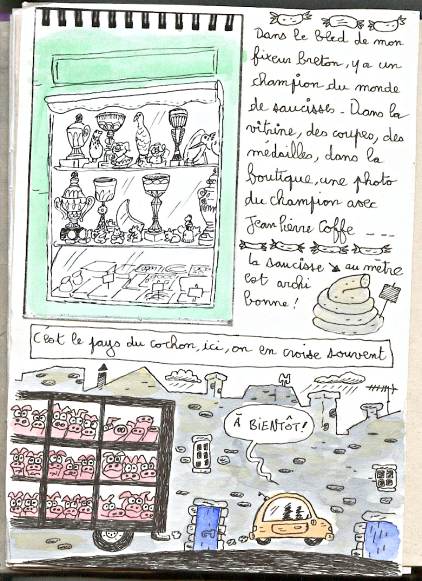 Dans le bled de mon
fixeur breton, y a un
champion du monde
de saucisses - Dans la
vitrine, des coupes, des
médailles, dans la
boutique, une photo
du champion avec
Jean Pierre Coffe ---
la saucisse ↘ au mètre
est archi
bonne !
C'est le pays du cochon, ici, on en croise souvent
À BIENTÔT!